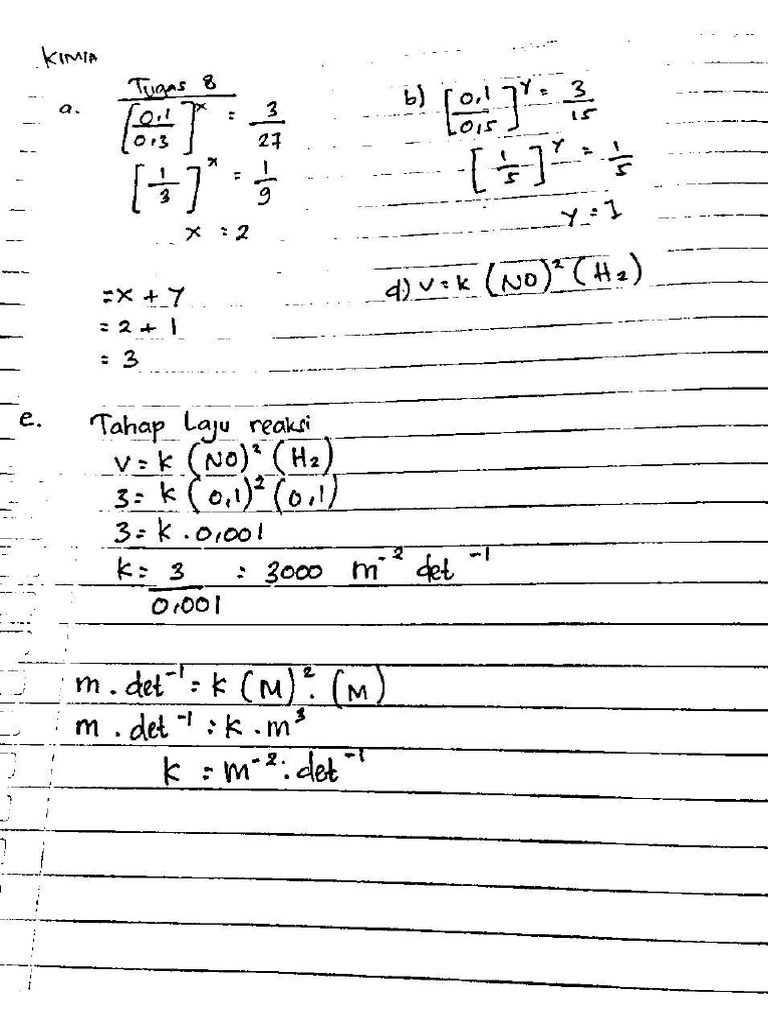 KIMIA
Tugas 8
a. [0,1/0,3]^x = 3/27
[1/3]^x = 1/9
x = 2
= x + y
= 2 + 1
= 3
b) [0,1/0,5]^y = 3/15
[1/5]^y = 1/5
y = 1
d) v = k (NO)² (H₂)
e. Tahap Laju reaksi
v = k (NO)² (H₂)
3 = k (0,1)² (0,1)
3 = k . 0,001
k = 3/0,001 = 3000 m⁻² det⁻¹
m . det⁻¹ = k (M)² . (M)
m . det⁻¹ = k . m³
k = m⁻² . det⁻¹